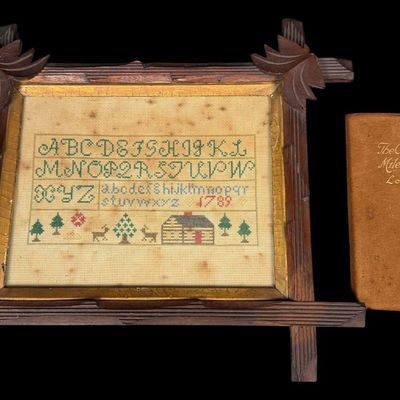 ABCDEFGHIJKL
MNOPQRSTUVW
XYZ abcdefghijklmnopqr
stuvwxyz 1789
The